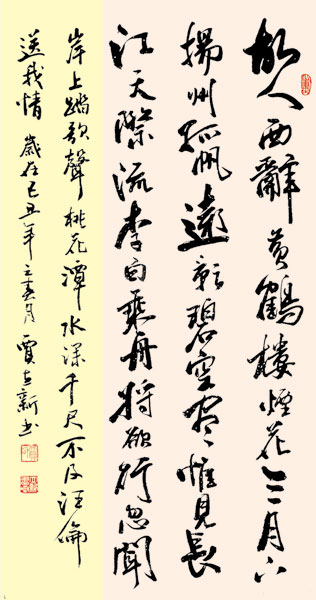 故人西辭黃鶴樓煙花三月下
揚州孤帆遠影碧空盡惟見長
江天際流李白乘舟將欲行忽聞
岸上踏歌聲桃花潭水深千尺不及汪倫
送我情 歲在己丑年之春月 書